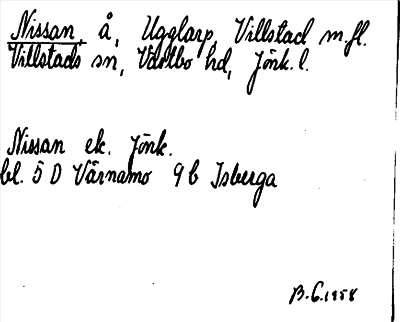 Nissan, å, Ugglarp, Villstad m.fl.
Villstads sn, Västbo hd, Jönk. l.
Nissan ek. Jönk.
bl. 5 D Värnamo 9 b Isberga
B.G. 1958